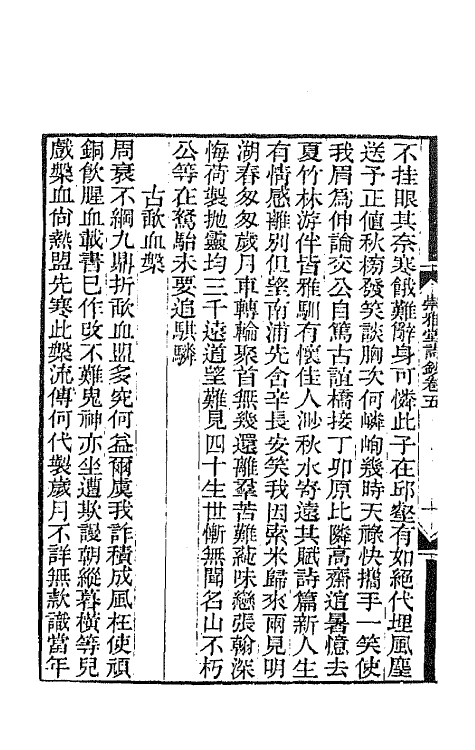 不挂眼其奈寒餓難辭身可憐此子在邱壑有如絕代埋風塵
送子正値秋榜發笑談胸次何嶙峋幾時天祿快攜手一笑使
我眉爲伸論交公自篤古誼橋接丁卯原比隣高齋逭暑憶去
夏竹林游伴皆雅馴有懷佳人渺秋水寄遠其賦詩篇新人生
有情感離別但望南浦先含辛長安笑我因索米歸來兩見明
湖春匆匆歲月車轉輪聚首無幾還離羣苦難蒓味戀張翰深
悔荷製抛靈均三千遠道望難見四十生世慚無聞名山不朽
公等在駑駘未要追騏驎
古歃血槃
周衰不綱九鼎折歃血盟多究何益爾虞我詐積成風枉使頑
銅飲腥血載書已作改不難鬼神亦坐遭欺謾朝縱暮橫等兒
戲槃血尙熱盟先寒此槃流傳何代製歲月不詳無款識當年
雅堂詩鈔卷五
十